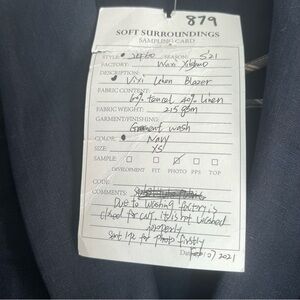 879
SOFT SURROUNDINGS
SAMPLING CARD
STYLE: SEASON: S'21
FACTORY: Wuxi
DESCRIPTION:
Vixi Linen Blazer
FABRIC CONTENT:
60% tencel 40% linen
FABRIC WEIGHT: 215 gsm
GARMENT/FINISHING:
Garment wash
COLOR: Navy
SIZE: XS
SAMPLE:
DEVELOPMENT FIT PHOTO PPS TOP
CODE:
COMMENTS:
Due to washing factory is
closed for CNY, it is not washed
properly
sent 1pc for photo firstly
Date: Feb 10, 2021